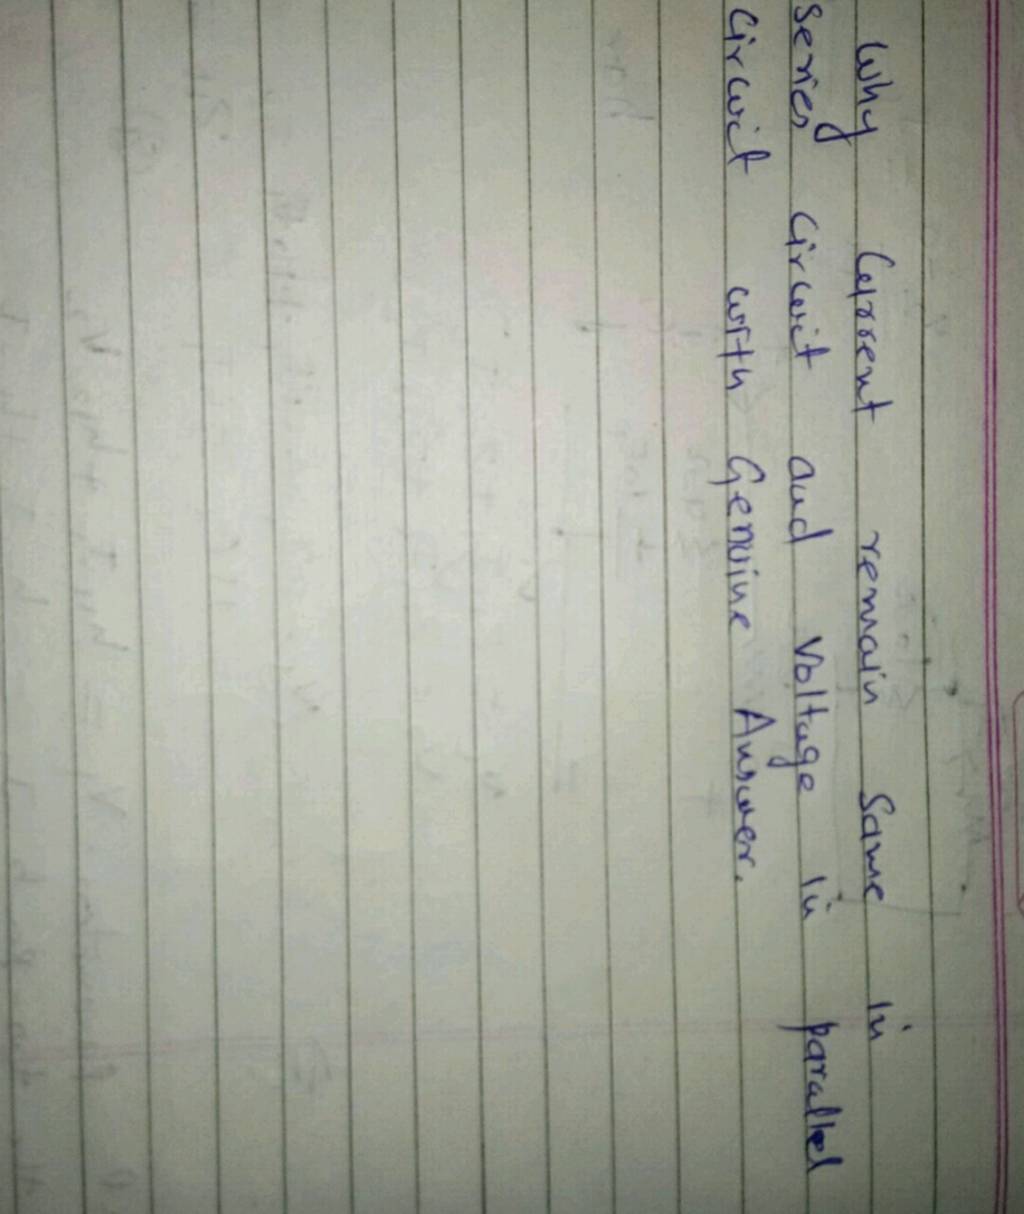 Why Current remain Same in
Series Circuit and Voltage in parallel
Circuit with Genuine Answer.